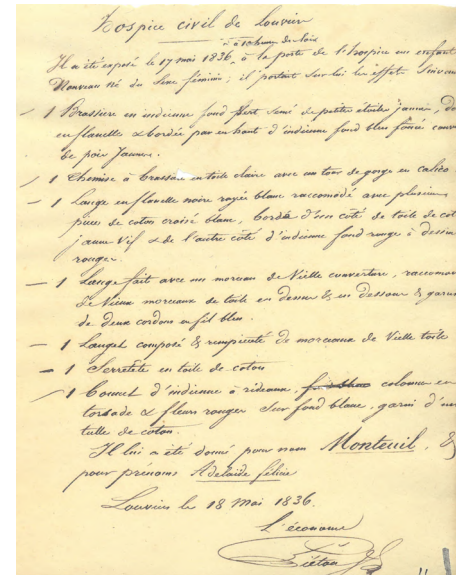 Hospice civil de Louviers
à 10 heures du soir
Il a été exposé le 17 mai 1836, à la porte de l'hospice un enfant
Nouveau né du Sexe féminin; il portait sur lui les effets Suivans
1 Brassière en indienne fond Vert semé de petites étoiles jaunes, do
en flanelle & bordée par en haut d'indienne fond bleu foncé couv
de pois Jaunes.
1 Chemise à brassière en toile claire avec un tour de gorge en calico
1 Lange en flanelle noire rayée blanc raccomodé avec plusieurs
pièce de coton croisé blanc, bordé d'un côté de toile de cot
jaune Vif & de l'autre côté d'indienne fond rouge à dessin
rouges.
1 Lange fait avec un morceau de Vieille couverture, raccomo
de Vieux morceaux de toile en dessus & en dessous & garni
de deux cordons en fil bleu.
1 Langet composé & rempiété de morceaux de Vielle toile
1 Serretête en toile de coton
1 Bonnet d'indienne à rideaux, colonne en
torsade & fleurs rouges Sur fond blanc, garni d'un
tulle de coton.
Il lui a été donné pour nom Monteuil, &
pour prénoms Adelaïde félicie
Louviers le 18 Mai 1836.
L'économe